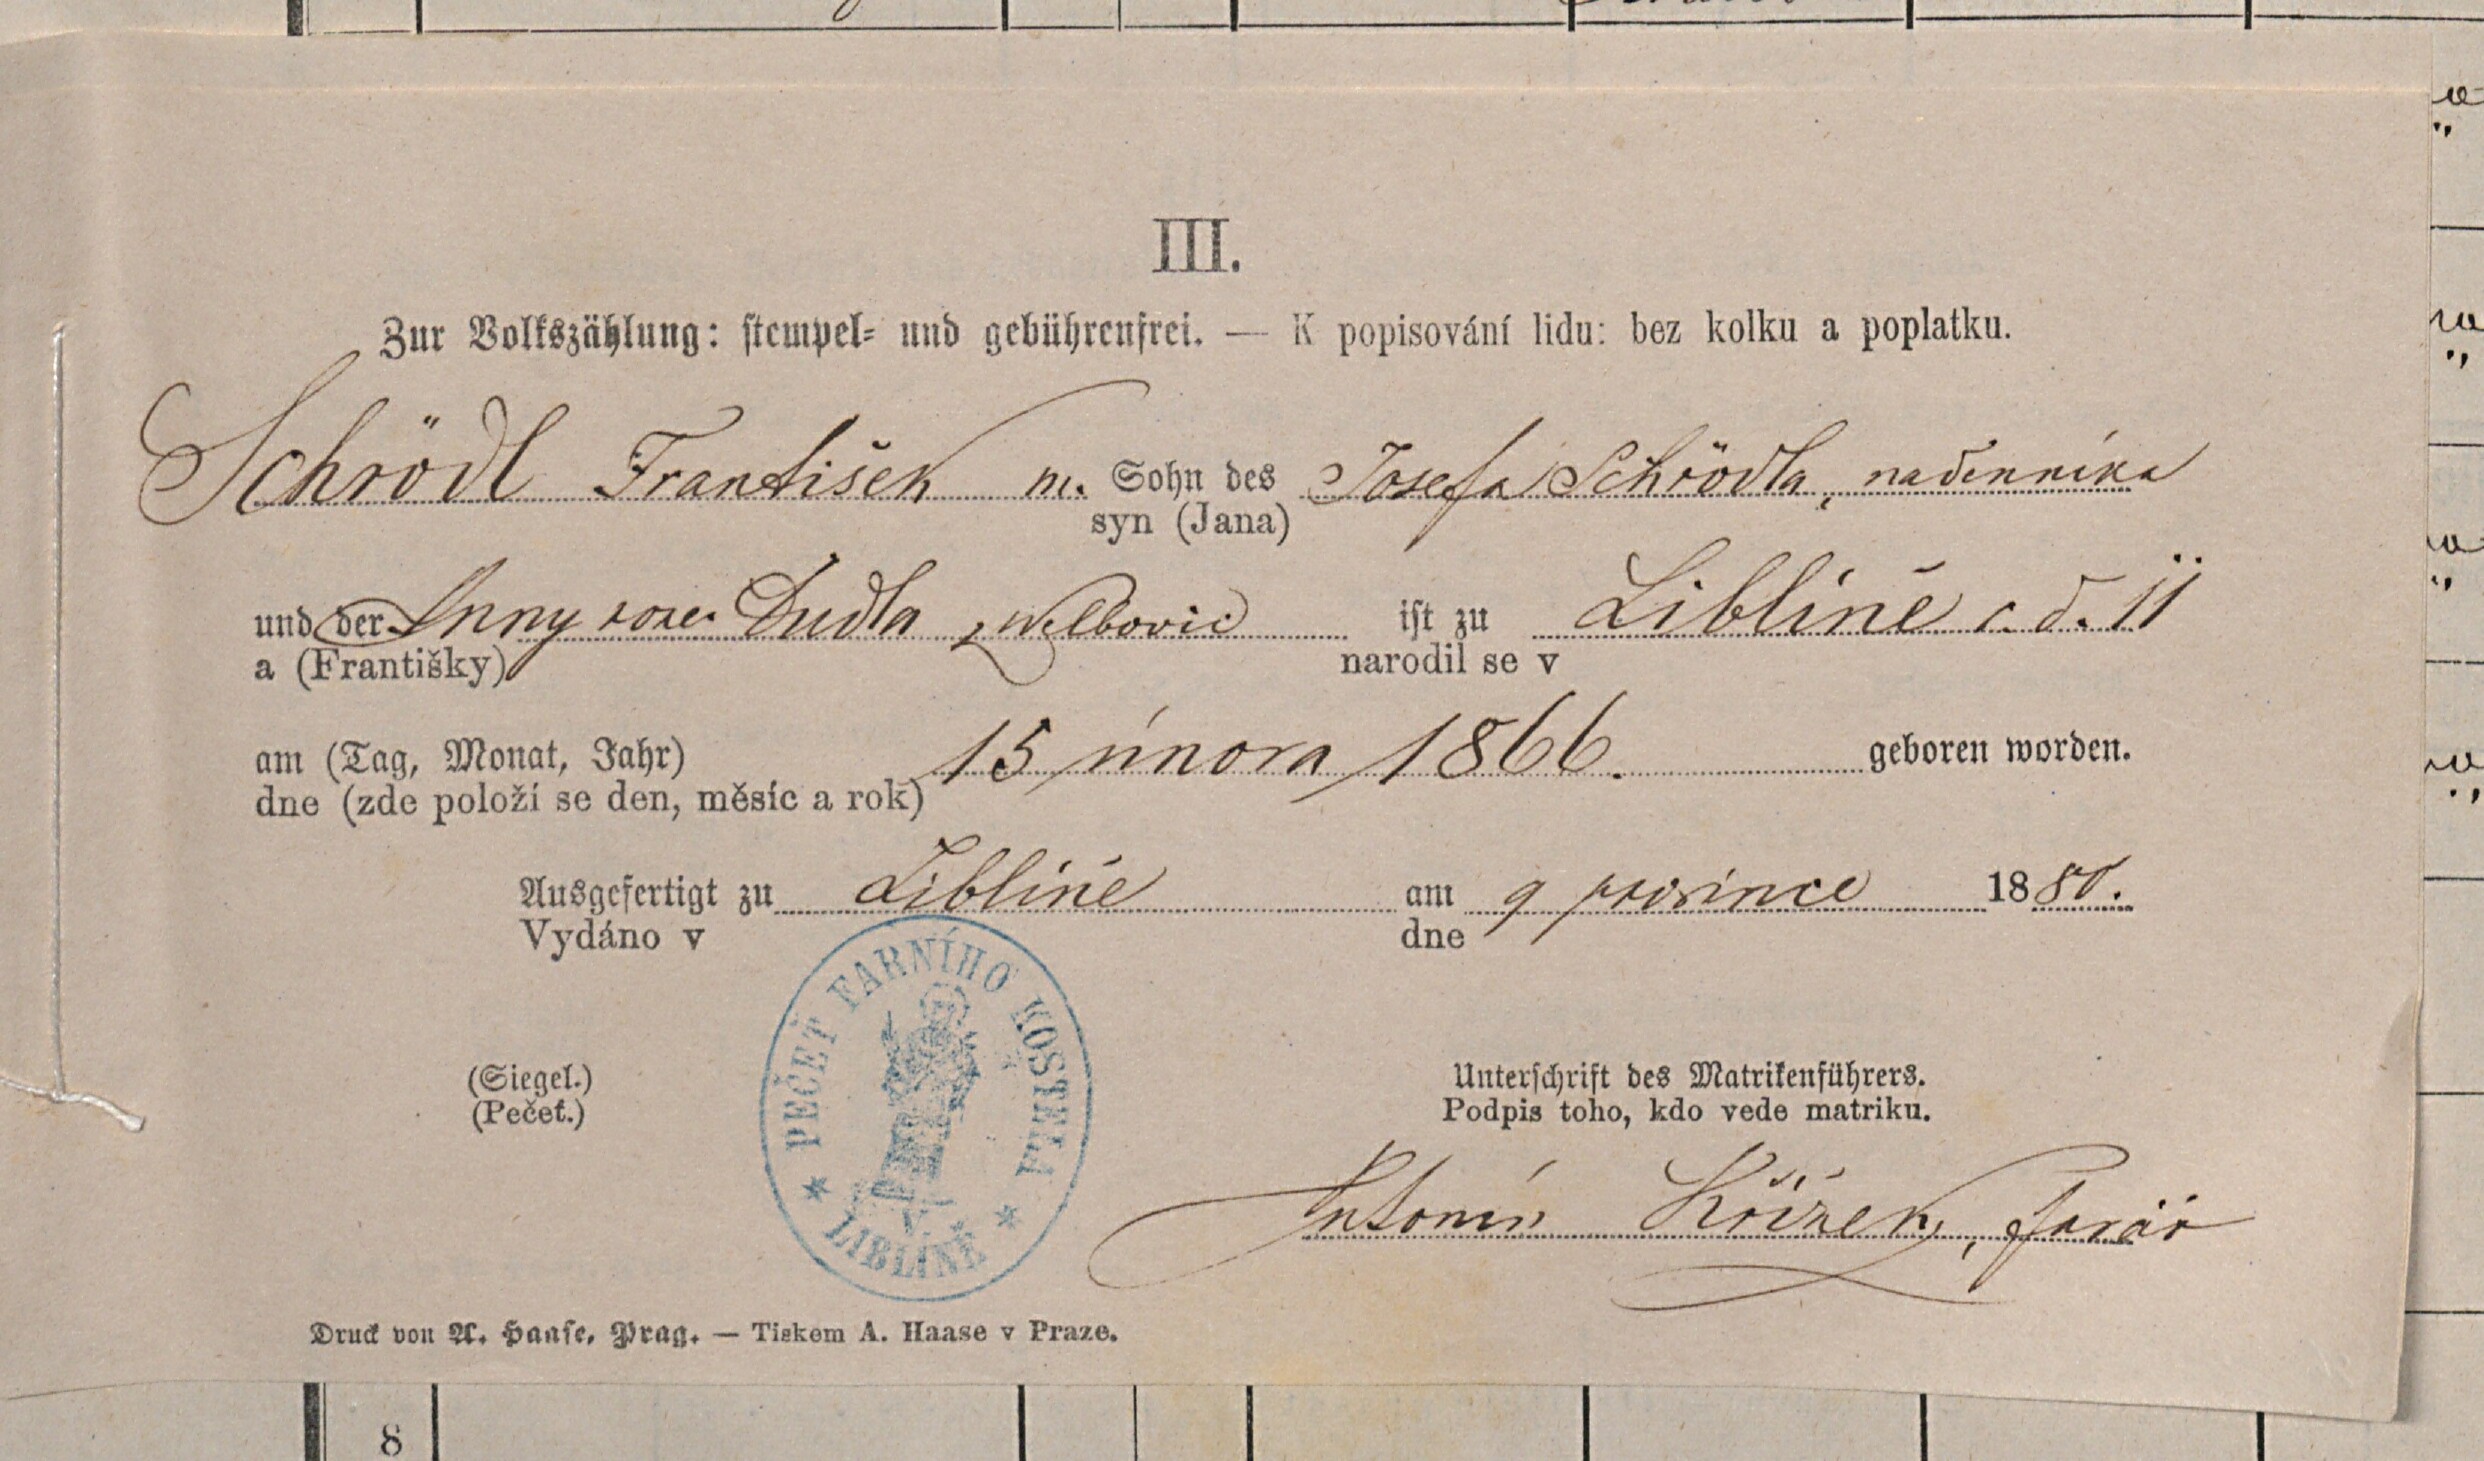 III.
Zur Volkszählung: stempel- und gebührenfrei. — K popisování lidu: bez kolku a poplatku.
Schrödl František m. Sohn des Josefa Schrödla, nadenníka
syn (Jana)
und der Anny roze. Dudla z Welbovic ist zu Liblíně č. d. 11
a (Františky) narodil se v
am (Tag, Monat, Jahr) 15 února 1866. geboren worden.
dne (zde položí se den, měsíc a rok)
Ausgefertigt zu Liblíně am 9 prosince 1880.
Vydáno v dne
PEČEŤ FARNÍHO KOSTELA
V
LIBLÍNĚ
(Siegel.)
(Pečeť.)
Unterschrift des Matrikenführers.
Podpis toho, kdo vede matriku.
Antonín Křížek, farář
Druck von A. Haase, Prag. — Tiskem A. Haase v Praze.
8